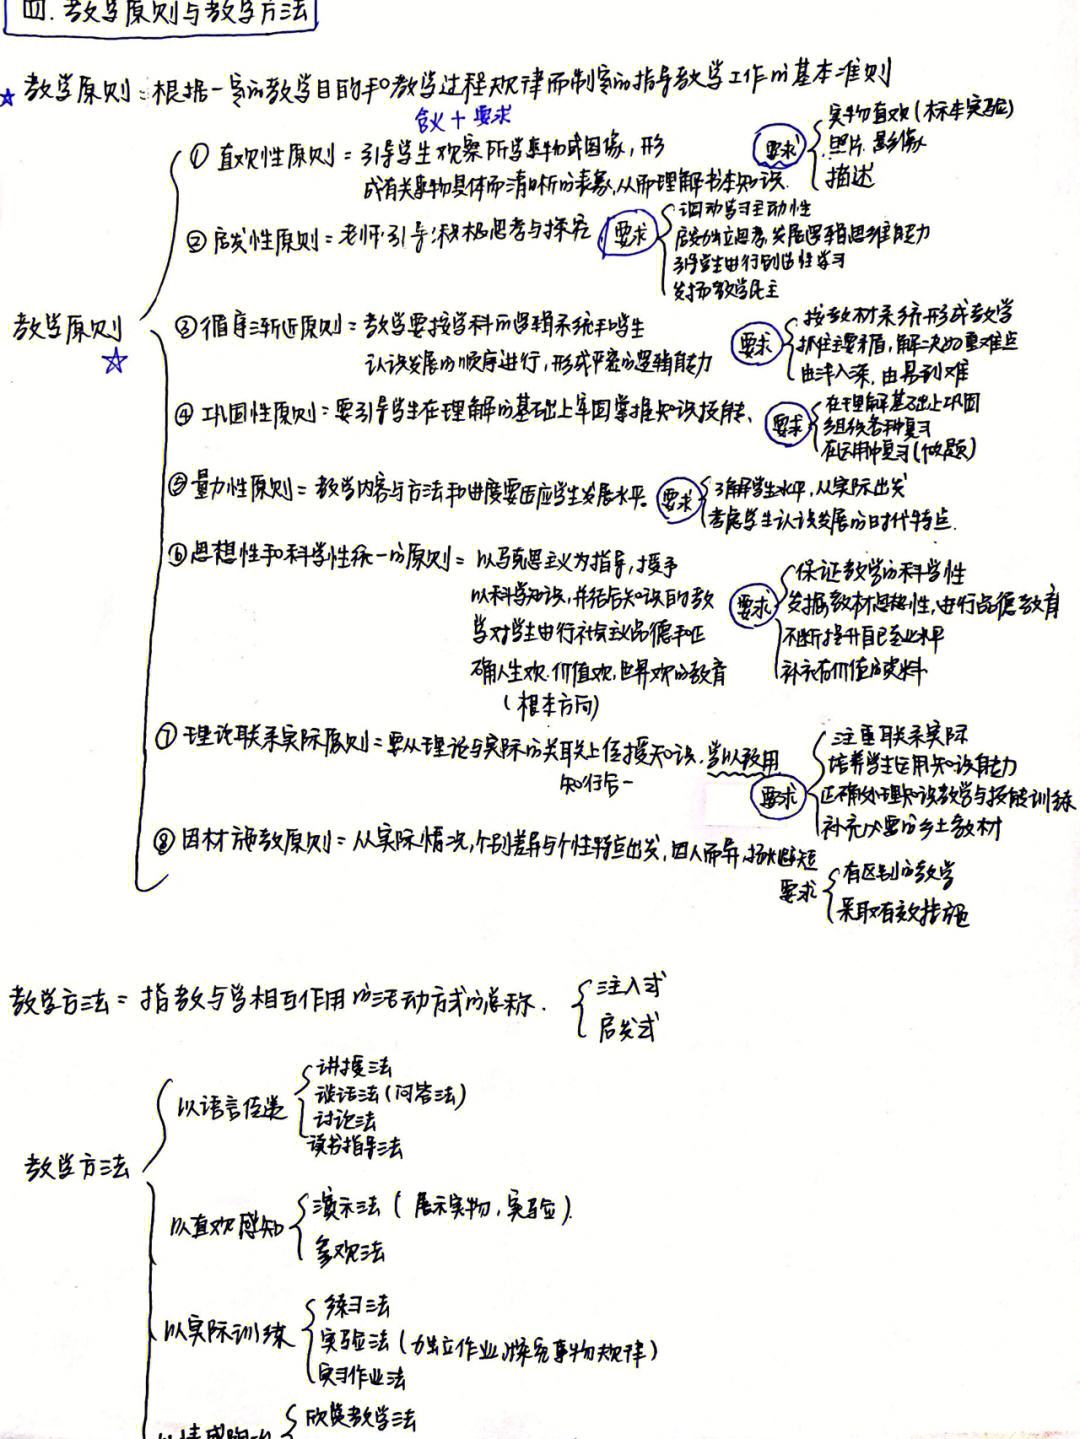 四.教学原则与教学方法
☆教学原则:根据一定的教学目的和教学过程规律而制定的指导教学工作的基本准则
含义+要求
①直观性原则=引导学生观察所学事物或图像,形
成有关事物具体而清晰的表象,从而理解书本知识.
要求
实物直观(标本实验)
照片.影像
描述
②启发性原则=老师引导积极思考与探究
要求
调动学习主动性
启发独立思考,发展逻辑思维能力
引导学生进行创造性学习
发扬教学民主
教学原则
☆
③循序渐近原则=教学要按学科的逻辑系统和学生
认识发展的顺序进行,形成严密的逻辑能力
要求
按教材系统形成教学
抓住主要矛盾,解决的重难点
由浅入深,由易到难
④巩固性原则=要引导学生在理解的基础上牢固掌握知识技能、
要求
在理解基础上巩固
组织各种复习
在运用中复习(做题)
⑤量力性原则=教学内容与方法和进度要适应学生发展水平
要求
了解学生水平,从实际出发
考虑学生认识发展的时代特点.
⑥思想性和科学性统一的原则=以马克思主义为指导,授予
以科学知识,并结合知识的教
学对学生进行社会主义品德和正
确人生观.价值观,世界观的教育
(根本方向)
要求
保证教学的科学性
发掘教材思想性,进行品德教育
不断提升自己专业水平
补充有价值的资料
⑦理论联系实际原则=要从理论与实际的关联上传授知识.学以致用
知行合一
要求
注重联系实际
培养学生运用知识能力
正确处理知识教学与技能训练
补充必要的乡土教材
⑧因材施教原则=从实际情况,个别差异与个性特点出发,因人而异,扬长避短
要求
有区别的教学
采取有效措施
教学方法=指教与学相互作用的活动方式的总称.
注入式
启发式
教学方法
以语言传递
讲授法
谈话法(问答法)
讨论法
读书指导法
以直观感知
演示法(展示实物,实验).
参观法
以实际训练
练习法
实验法(独立作业,探究事物规律)
实习作业法
欣赏教学法